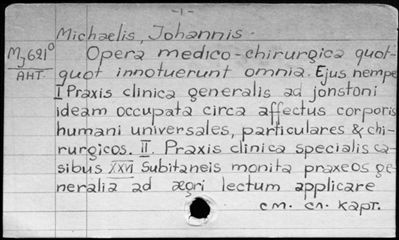 -1-
Michaelis, Johannis.
Mj621⁰ Opera medico-chirurgica quot-
АНТ. quot innotuerunt omnia. Ejus nempe
I Praxis clinica generalis ad jonstoni
ideam occupata circa affectus corporis
humani universales, particulares & chi-
rurgicos. II. Praxis clinica specialis ca-
sibus XXVI Subitaneis monita praxeos ge-
neralia ad ægri lectum applicare
см. сл. карт.